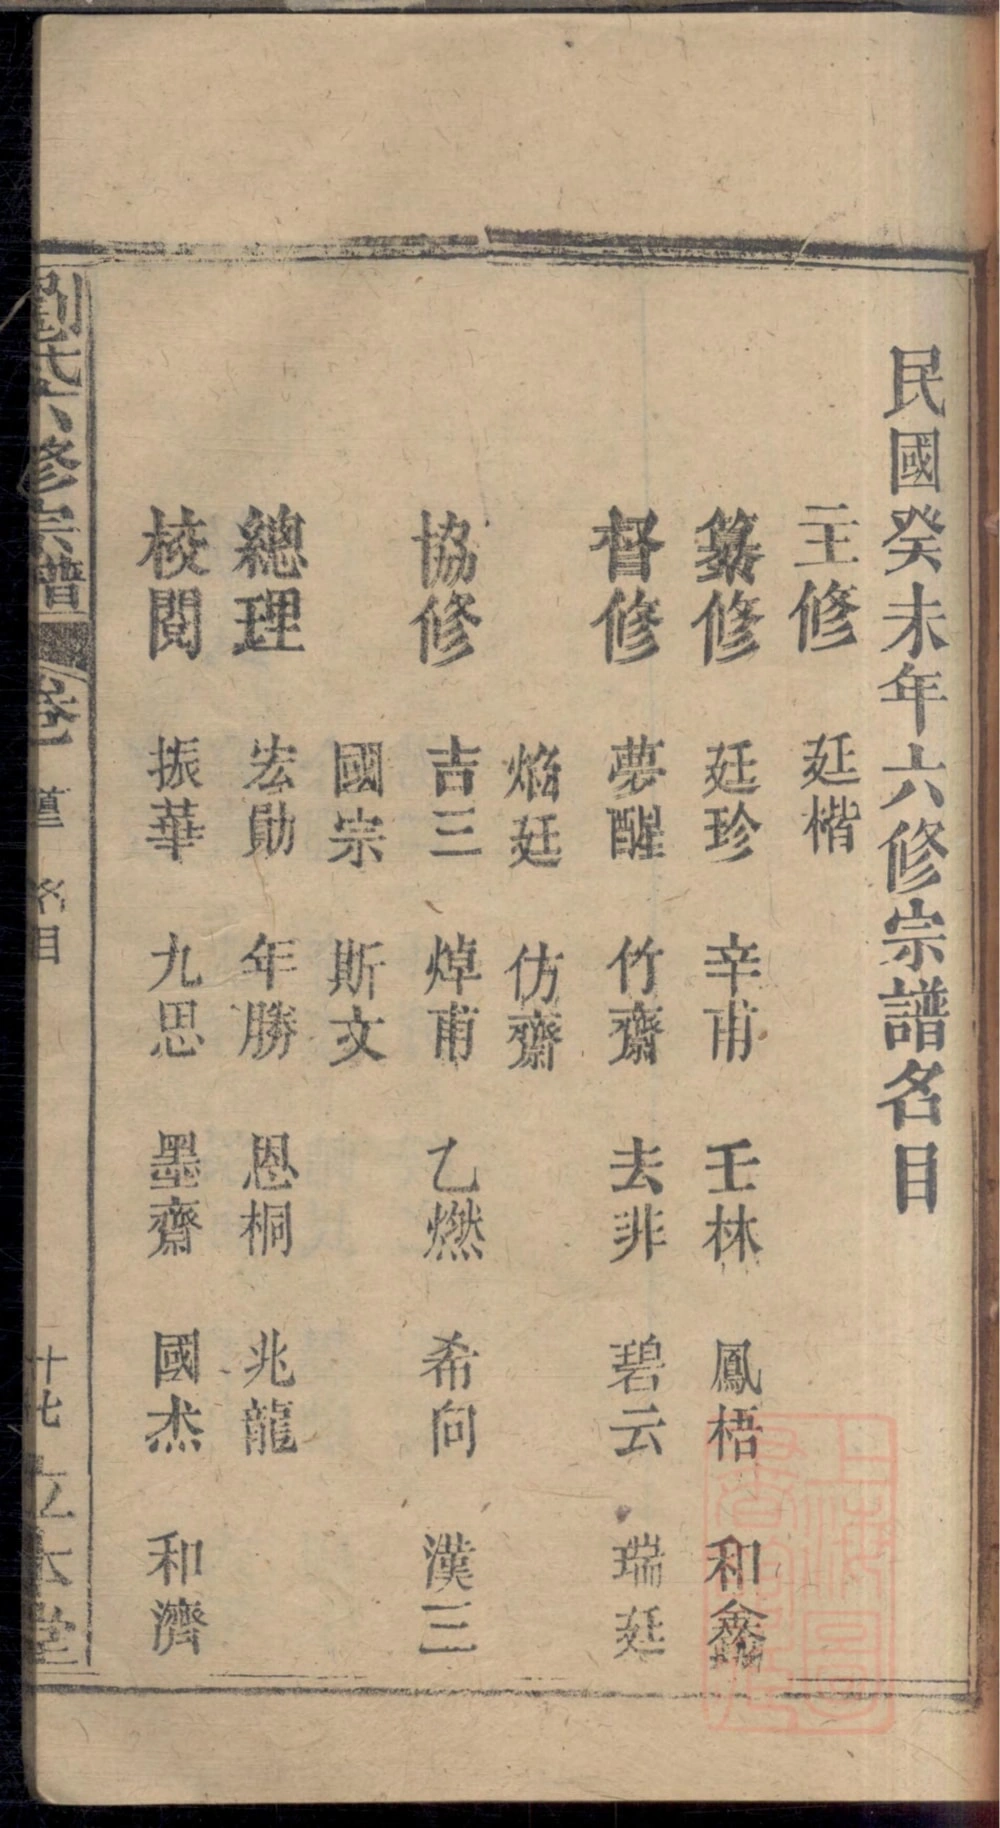 民國癸未年六修宗譜名目
主修 延楷
纂修 廷珍 辛甫 壬林 鳳梧 和
督修 夢醒 竹齋 去非 碧云 瑞廷
焰廷 仿齋
協修 吉三 焯甫 乙燃 希向 漢三
國宗 斯文
總理 宏勛 年勝 恩桐 兆龍
校閱 振華 九思 墨齋 國杰 和濟
劉氏六修宗譜 卷 名目 十七 立本堂